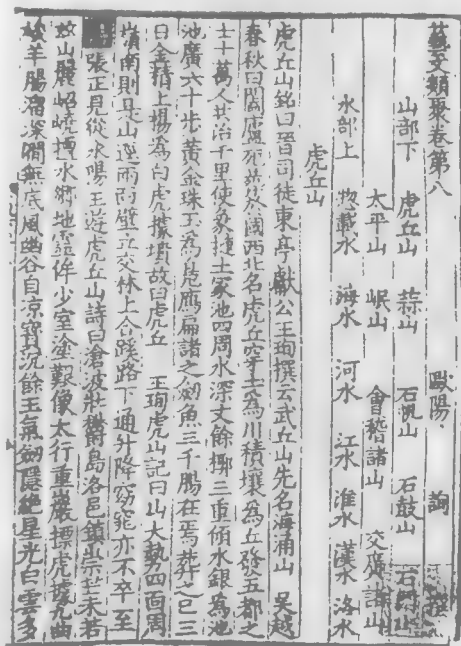 藝文類聚卷第八
歐陽 詢 撰
山部下 虎丘山 蒜山 石帆山 石鼓山 石門山
太平山 岷山 會稽諸山 交廣諸山
水部上 揔載水 海水 河水 江水 淮水 漢水 洛水
虎丘山
虎丘山銘曰晉司徒東亭獻公王珣撰云武丘山先名海涌山 吳越
春秋曰闔廬死葬於國西北名虎丘穿土為川積壤為丘發五都之
士十萬人共治千里使象揰土冢池四周水深丈餘槨三重傾水銀為池
池廣六十步黃金珠玉為鳧鴈扁諸之劒魚三千腸在焉葬之已三
日金精上揚為白虎據墳故曰虎丘 王珣虎山記曰山大勢四面周
嶺南則是山逕兩面壁立交林上合蹊路下通升降窈窕亦不卒至
張正見從永陽王遊虎丘山詩曰滄波壯鬱島洛邑鎮崇芒未若
茲山麗岧嶢擅水鄉地靈侔少室塗艱像太行重巖摽虎據九曲
峻羊腸溜深澗無底風幽谷自凉寶沉餘玉氣劒隱絕星光白雲多